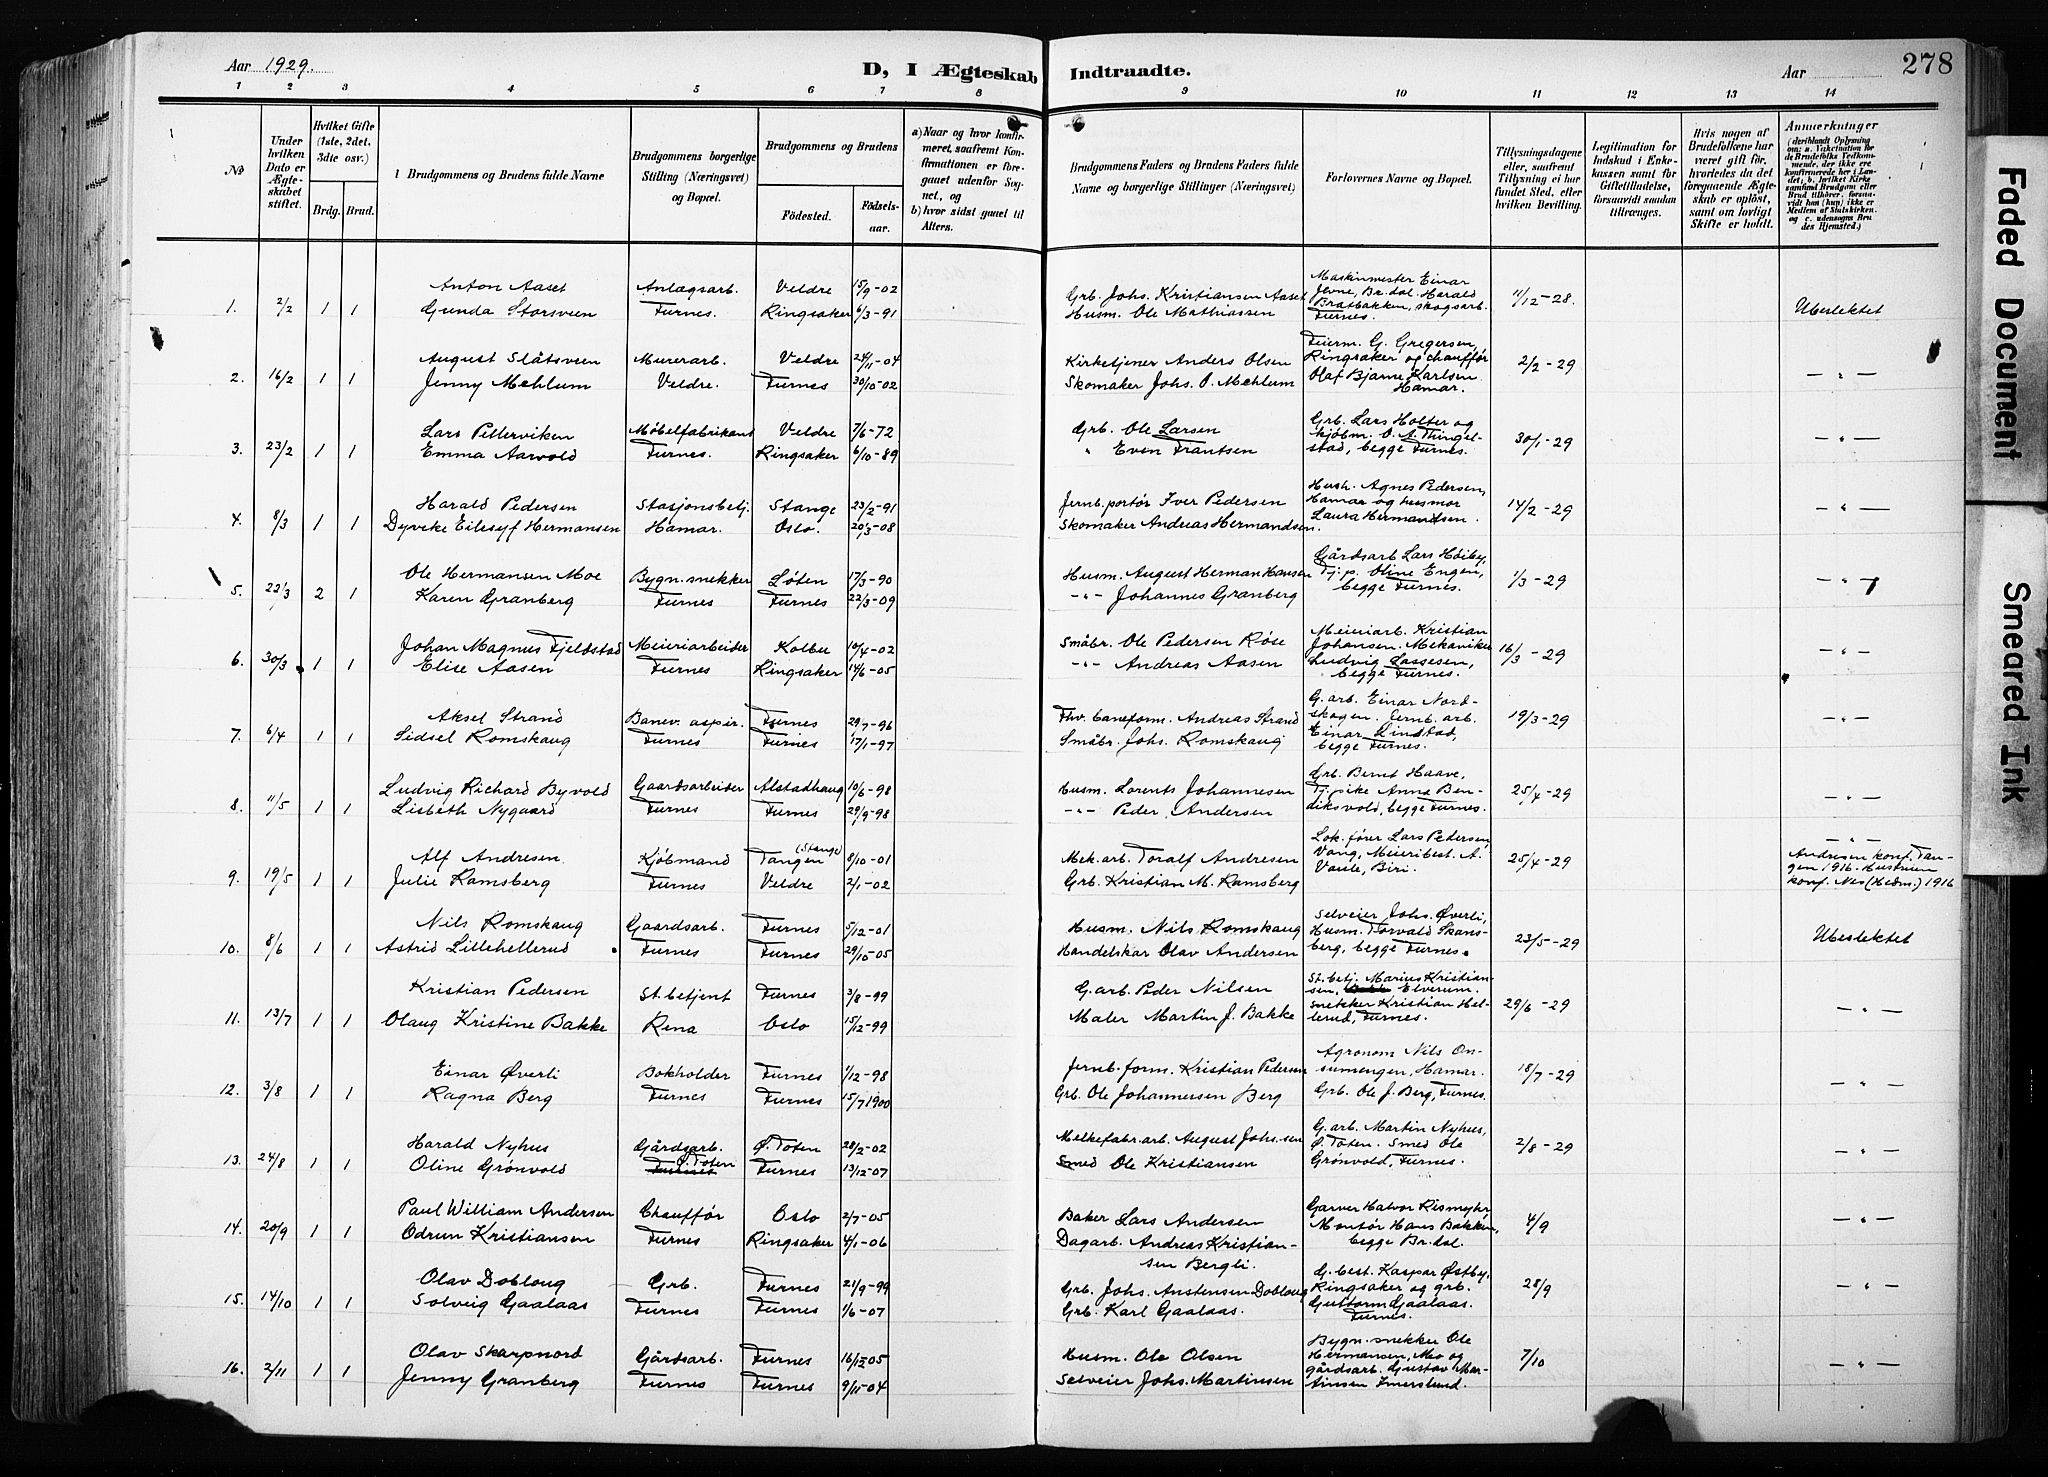 Aar 1929.
D, I Ægteskab Indtraadte.
Aar
278
1 2 3 4 5 6 7 8 9 10 11 12 13 14
No
Under hvilken Dato er Ægteskabet stiftet.
Hvilket Gifte (1ste, 2det, 3die osv.)
Brdg. Brud.
Brudgommens og Brudens fulde Navne
Brudgommens borgerlige Stilling (Næringsvei) og Bopæl.
Brudgommens og Brudens
Fødested.
Fødselsaar.
a) Naar og hvor konfirmeret, saafremt Konfirmationen er foregaaet udenfor Sognet, og
b) hvor sidst gaaet til Alters.
Brudgommens Faders og Brudens Faders fulde Navne og borgerlige Stillinger (Næringsvei)
Forlovernes Navne og Bopæl.
Tillysningsdagene eller, saafremt Tillysning ei har fundet Sted, efter hvilken Bevilling.
Legitimation for Indskud i Enkekassen samt for Giftetilladelse, forsaavidt saadan tiltrænges.
Hvis nogen af Brudefolkene har været gift før, hvorledes da det foregaaende Ægteskab er opløst, samt om lovligt Skifte er holdt.
Anmerkninger
(deriblandt Oplysning om: a. Vakcination for de Brudefolks Vedkommende, der ikke ere konfirmerede her i Landet; b. hvilket Kirkesamfund Brudgom eller Brud tilhører, forsaavidt han (hun) ikke er Medlem af Statskirken, og c. udensogns Brudes Hjemsted.)
1. 2/2 1 1 Anton Aaset Anlægsarb. Veldre 15/9-02 Grb. Johs. Kristiansen Aaset Maskinmester Einar Jevne, Br.dal. Harald Bratbakken, skogsarb. Furnes. 11/12-28. Ubeslektet
Gunda Storsveen Furnes. Ringsaker 6/3-91 Husm. Ole Mathiassen
2. 16/2 1 1 August Slåtsveen Murerarb. Veldre 24/11-04 Kirketjener Anders Olsen Feierm. G. Gregersen, Ringsaker og chauffør Olaf Bjarne Karlsen Hamar. 2/2-29 — " —
Jenny Mehlum Veldre. Furnes 30/10-02 Skomaker Johs. O. Mehlum
3. 23/2 1 1 Lars Pellerviken Møbelfabrikant Veldre 7/6-72 Grb. Ole Larsen Grb. Lars Holter og kjøbm. O. A. Thingelstad, begge Furnes. 30/1-29 — " —
Emma Aarvold Furnes. Ringsaker 6/10-89 " Even Frantsen
4. 8/3 1 1 Harald Pedersen Stasjonsbetj. Stange 23/2-91 Jernb.portør Iver Pedersen Hush. Agnes Pedersen, Hamar og husmor Laura Hermandsen. 14/2-29 — " —
Dyveke Eilesyf Hermansen Hamar. Oslo. 20/3-08 Skomaker Andreas Hermandsen.
5. 22/3 2 1 Ole Hermansen Moe Bygn.snekker Løten 17/3-90 Husm. August Herman Hansen Gårdsarb Lars Høiby, Tj.p. Oline Engen, begge Furnes. 1/3-29 — " —
Karen Granberg Furnes Furnes 22/3-09 — " — Johannes Granberg
6. 30/3 1 1 Johan Magnus Fjeldstad Meieriarbeider Kolbu 10/4-02 Småbr. Ole Pedersen Røse Meieriarb. Kristian Johansen. Mekaviker Ludvig Lassesen, begge Furnes. 16/3-29 — " —
Elise Aasen Furnes Ringsaker 14/6-05 — " — Andreas Aasen
7. 6/4 1 1 Aksel Strand Banev. aspir. Furnes 29/7-96 Fhv. baneform. Andreas Strand G. arb. Einar Nordskogen. Jernb. arb. Einar Lindstad, begge Furnes. 19/3-29 — " —
Sidsel Romskaug Furnes Furnes 17/1-97 Småbr. Johs. Romskaug
8. 11/5 1 1 Ludvig Richard Byvold Gaardsarbeider Alstadhaug 10/6-98 Husm. Lorents Johannesen Grb. Bernt Haave, Tj.pike Anna Bendiksvold, begge Furnes. 25/4-29 — " —
Lisbeth Nygaard Furnes Furnes 29/9-98 — " — Peder Andersen
9. 19/5 1 1 Alf Andresen Kjøbmand Tangen (Stange) 8/10-01 Mek.arb. Toralf Andresen Lok.fører Lars Pedersen Vang, Meieribest. A. Vaule, Biri. 25/4-29 — " — Andresen konf. Tangen 1916. Hustruen konf. Nes (Hedm.) 1916
Julie Ramsberg Furnes Veldre 2/1-02 Grb. Kristian M. Ramsberg
10. 8/6 1 1 Nils Romskaug Gaardsarb. Furnes 5/12-01 Husm. Nils Romskaug Selveier Johs. Øverli, Husm. Torvald Skansberg, begge Furnes. 23/5-29 Ubeslektet
Astrid Lillehellerud Furnes Furnes 29/10-05 Handelskar Olav Andersen
11. 13/7 1 1 Kristian Pedersen St.betjent Furnes 3/8-99 G.arb. Peder Nilsen St.betj. Marius Kristiansen, Elverum. Snekker Kristian Hellerud, Furnes. 29/6-29 — " —
Olaug Kristine Bakke Rena Oslo 15/12-99 Maler Martin J. Bakke
12. 3/8 1 1 Einar Øverli Bokholder Furnes 1/12-98 Jernb.form. Kristian Pedersen Agronom Nils Onsumengen, Hamar. Grb. Ole J. Berg, Furnes. 18/7-29 — " —
Ragna Berg Furnes Furnes 15/7 1900 Grb. Ole Johannersen Berg
13. 24/8 1 1 Harald Nyhus Gårdsarb. Ø. Toten 28/2-02 Melkefabr.arb. August Johs.sen G. arb. Martin Nyhus, Ø. Toten. Smed Ole Grønvold, Furnes. 2/8-29 — " —
Oline Grønvold Ø. Toten Furnes 13/12-07 Smed Ole Kristiansen
14. 20/9 1 1 Paul William Andersen Chauffør Oslo 2/7-05 Baker Lars Andersen Garver Halvor Rismyhr, Montør Hans Bakken, begge Br.dal. 4/9 — " —
Odrun Kristiansen Furnes Ringsaker 4/1-06 Dagarb. Andreas Kristiansen Bergli.
15. 14/10 1 1 Olav Dobloug Grb. Furnes 21/9-99 Grb. Johs. Anstensen Dobloug G. best. Kaspar Østby, Ringsaker og grb. Guttorm Gaalaas. Furnes. 28/9 — " —
Solveig Gaalaas Furnes Furnes 1/6-07 Grb. Karl Gaalaas.
16. 2/11 1 1 Olav Skarpnord Gårdsarb. Furnes 16/12-05 Husm. Ole Olsen Bygn.snekker Ole Hermansen, Mo og gårdsarb. Gustav Martinsen Imerslund. 7/10 — " —
Jenny Granberg Furnes Furnes 9/11-04 Selveier Johs. Martinsen
Faded Document
Smeared Ink